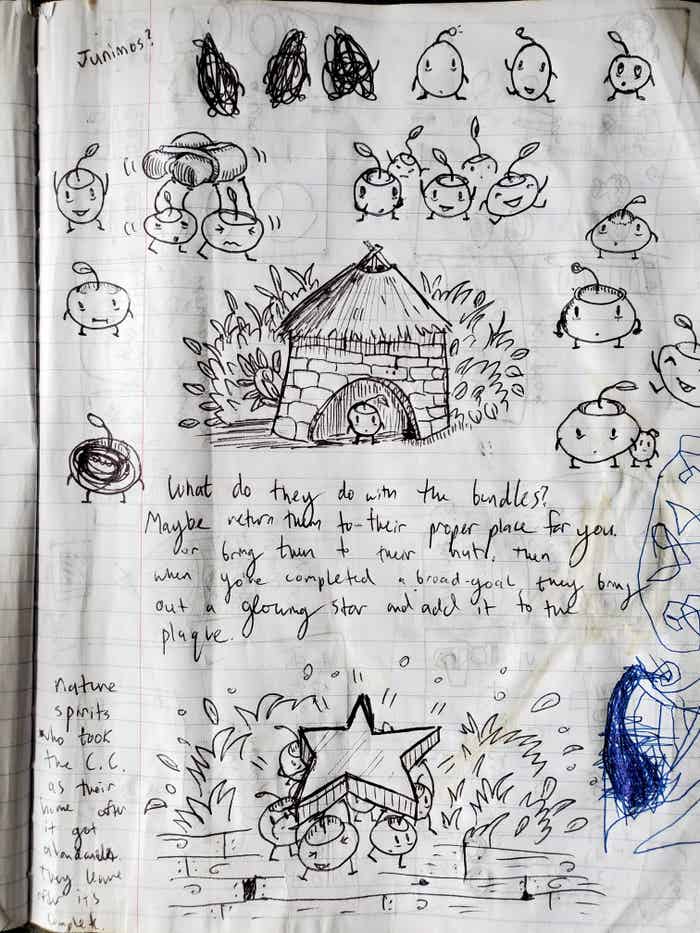 Junimos?
What do they do with the bundles?
Maybe return them to their proper place for you.
or bring them to their huts. Then
when you've completed a broad-goal they bring
out a glowing star and add it to the
plaque.
nature
spirits
who took
the C.C.
as their
home after
it got
abandoned.
they leave
its